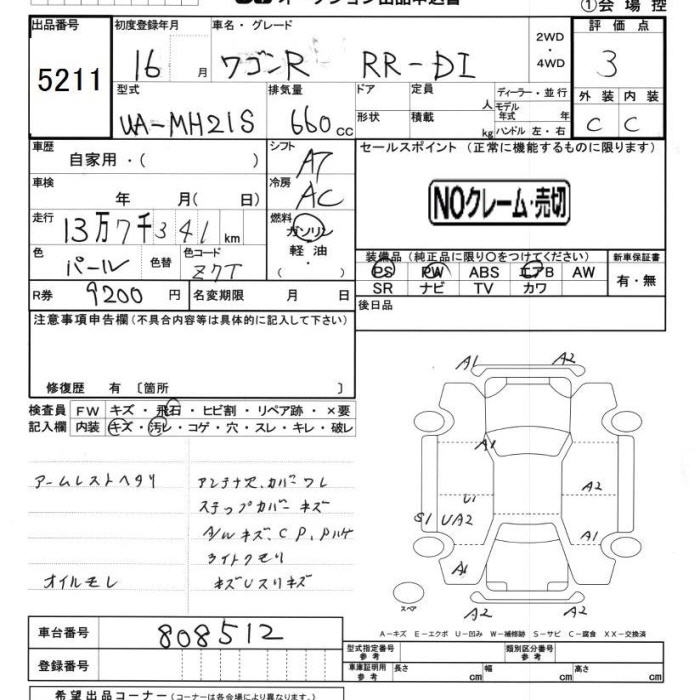 オークション出品申込書
①会場控
出品番号 初度登録年月 車名・グレード 評価点
5211 16 月 ワゴンR RR-DI 2WD・4WD 3
型式 排気量 ドア 定員 人 ディーラー・並行 外装 内装
UA-MH21S 660cc 形状 積載 kg モデル年式 年 C C
ハンドル 左・右
車歴 シフト セールスポイント(正常に機能するものに限ります)
自家用・( ) AT
車検 冷房
年 月( 日) AC NOクレーム・売切
走行 燃料
13万7千341km ガソリン
軽油
・
( )
色 色替 色コード 装備品(純正品に限り○をつけてください) 新車保証書
パール Z7T PS PW ABS エアB AW 有・無
SR ナビ TV カワ
R券 9200円 名変期限 月 日 後日品
注意事項申告欄(不具合内容等は具体的に記入して下さい)
修復歴 有 〔箇所 〕
検査員 FW キズ・飛石・ヒビ割・リペア跡・×要
記入欄 内装 キズ・汚レ・コゲ・穴・スレ・キレ・破レ
アームレストヘタリ
オイルモレ
ステップカバーキズ
A/Wキズ、CP、Pハゲ
ライトクモリ
キズUスリキズ
A1 A2
A1
U1 A2
S1 UA2
A1
A1
A2 A2
スペア
A-キズ E-エクボ U-凹み W-補修跡 S-サビ C-腐食 XX-交換済
車台番号 808512
登録番号
型式指定番号 参考 類別区分番号 参考
車庫証明用 参考 長さ cm 幅 cm 高さ cm
希望出品コーナー(コーナーは各会場により異なります。)